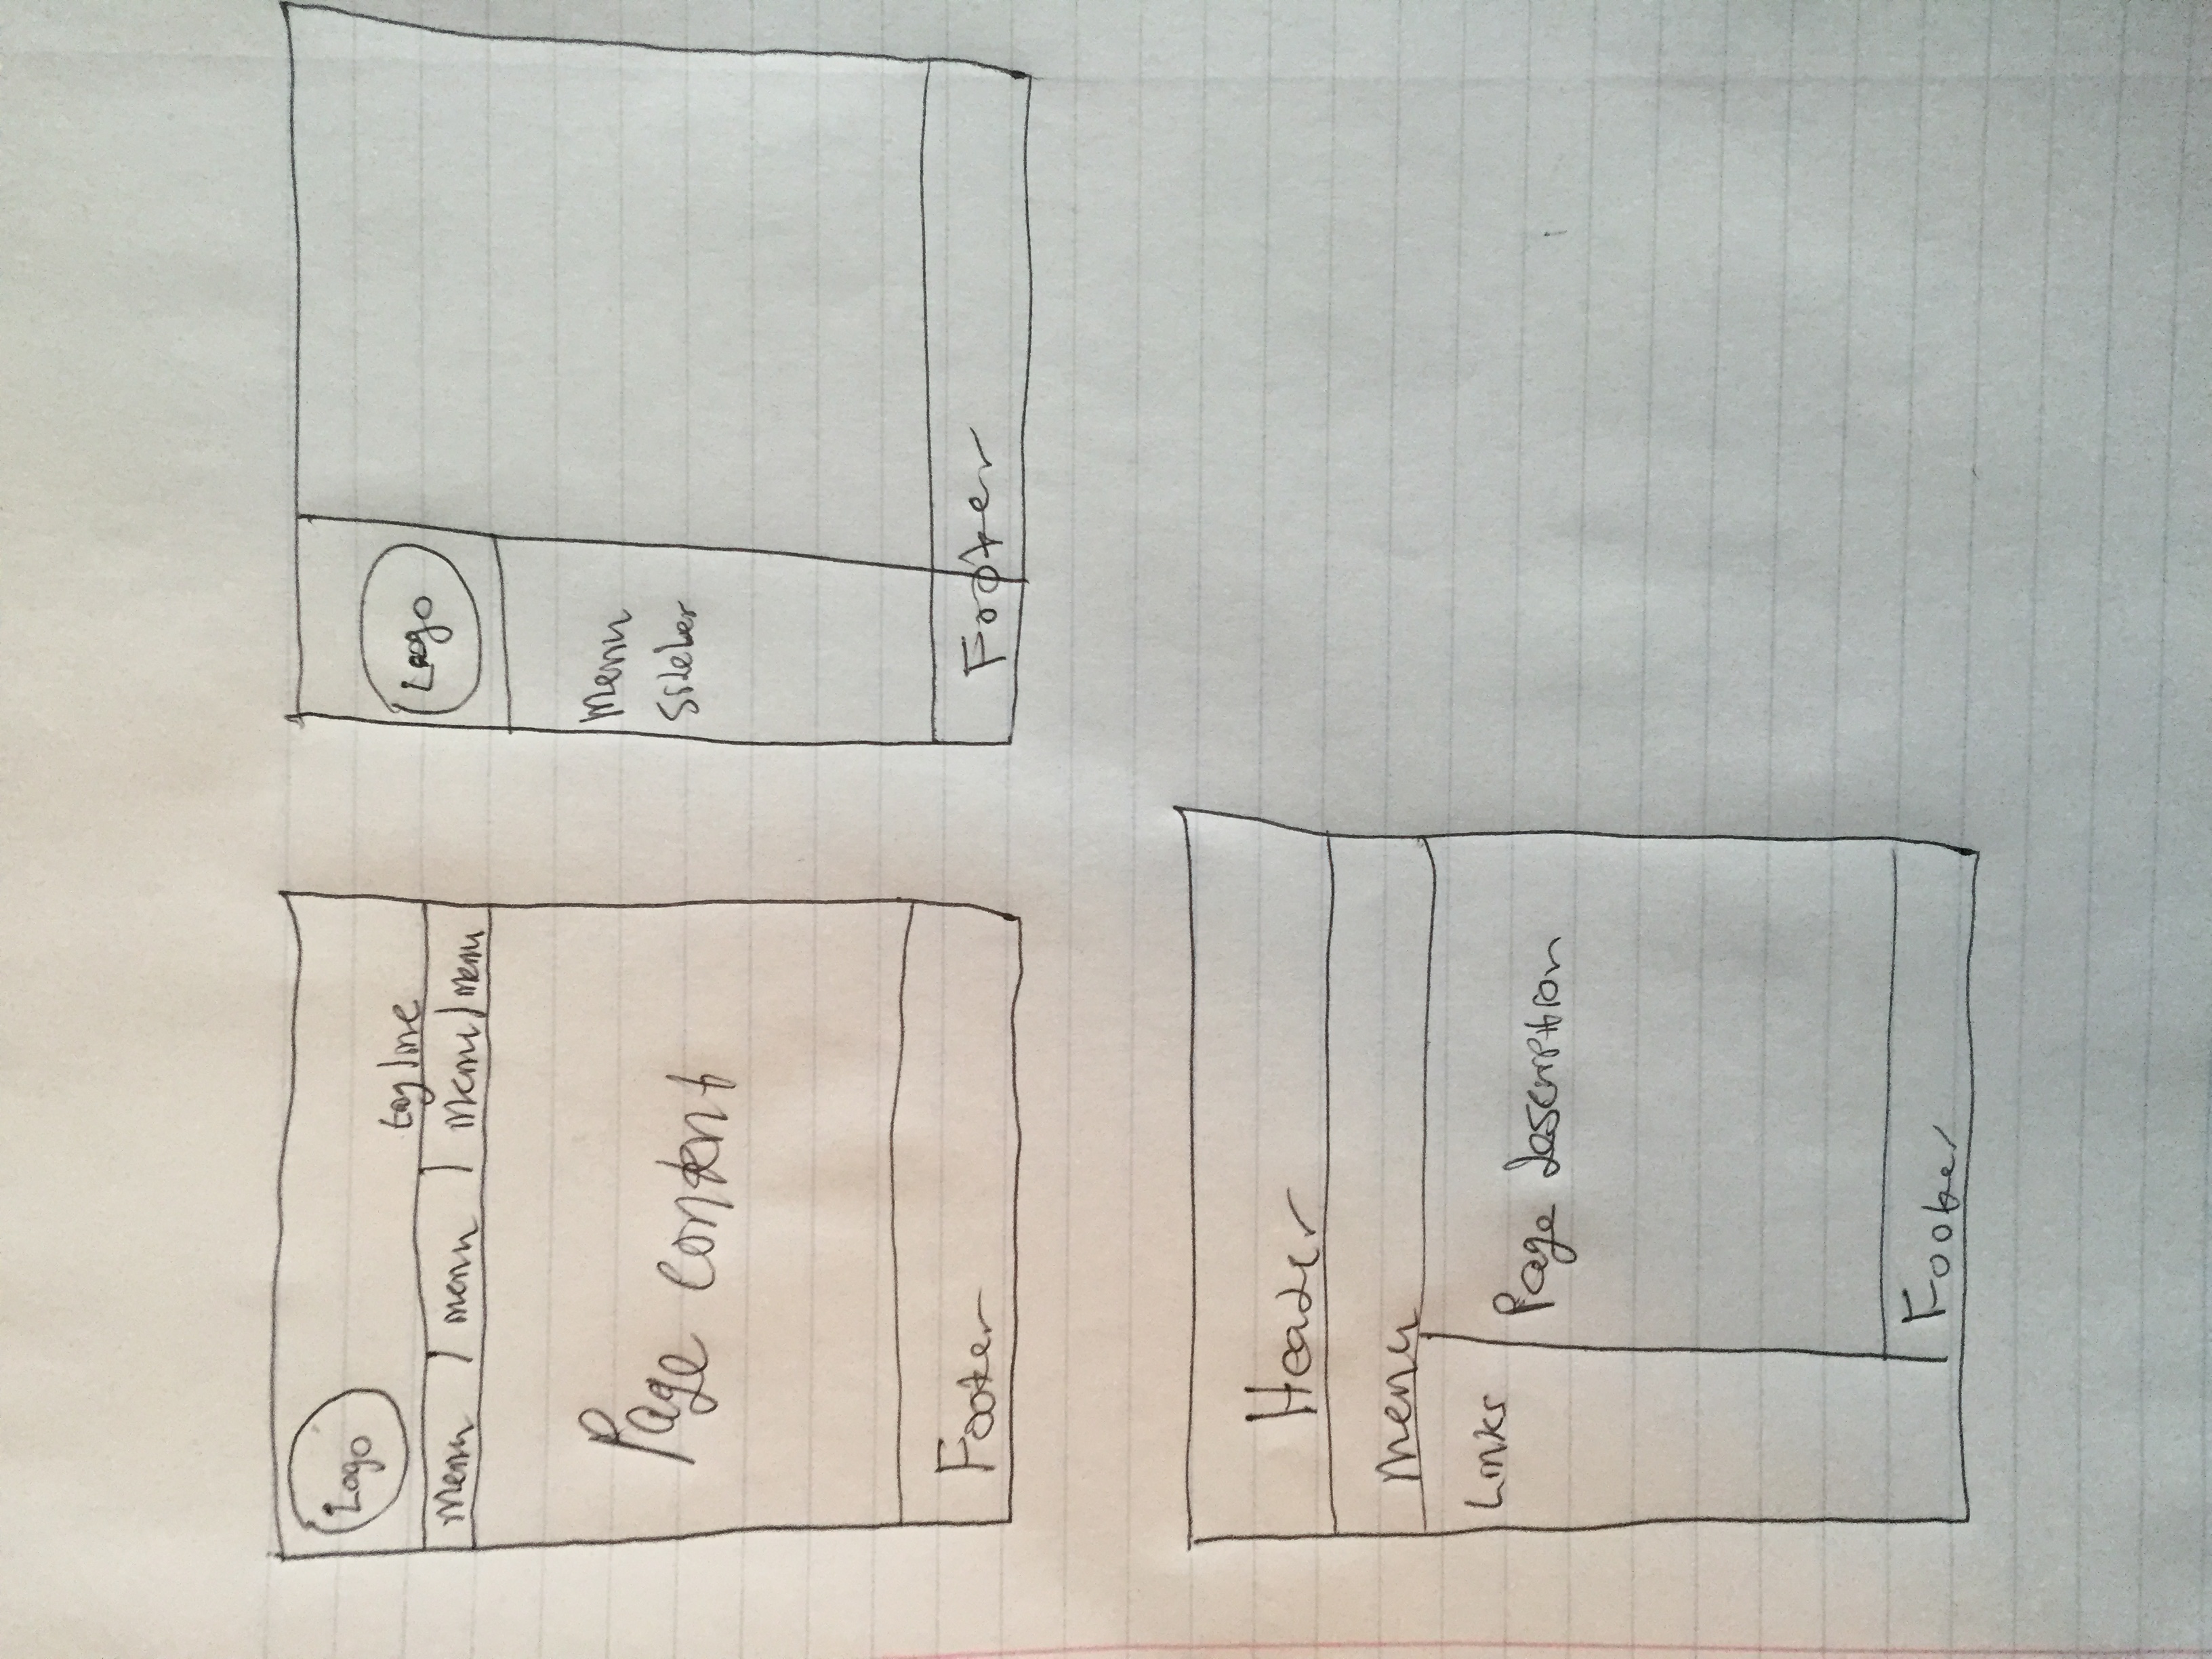 Logo
tagline
Menu | menu | Menu | menu
Page content
Footer
Logo
Menu
Sidebar
Footer
Header
Menu
Links
Page description
Footer